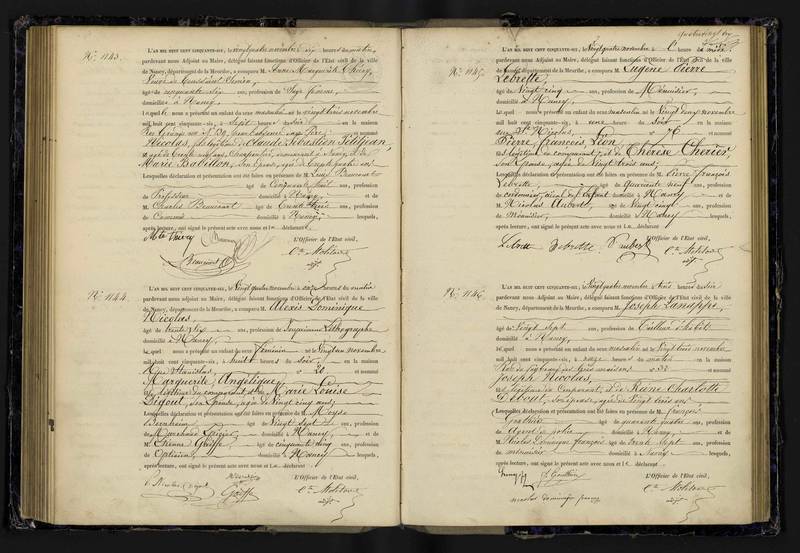 N° 1143.
L'AN MIL HUIT CENT CINQUANTE-SIX, le vingt quatre novembre dix heures du matin,
pardevant nous Adjoint au Maire, délégué faisant fonctions d'Officier de l'Etat civil de la ville
de Nancy, département de la Meurthe, a comparu M. Anne Marguerite Thiery,
âgé de cinquante six ans, profession de Sage femme,
domicilié à Nancy,
lequel nous a présenté un enfant du sexe masculin né le vingt trois novembre
mil huit cent cinquante-six, à Sept heures du Soir en la maison
et nommé
Nicolas, fils légitime de Claude Sébastien Petitjean
âgé de trente ans, Charpentier, demeurant à Nancy et de
Marie Babillon, Son épouse, âgée de
Lesquelles déclaration et présentation ont été faites en présence de M. Louis Beaucourt
âgé de Cinquante huit ans, profession
de Professeur domicilié à Nancy et de
M. Charles Beaucourt âgé de trente trois ans, profession
de Commis domicilié à Nancy lesquels,
après lecture, ont signé le présent acte avec nous et le déclarant.
L'Officier de l'Etat civil,
Mte Thiery
Beaucourt
N° 1144.
L'AN MIL HUIT CENT CINQUANTE-SIX, le Vingt quatre Novembre à onze heures du matin
pardevant nous Adjoint au Maire, délégué faisant fonctions d'Officier de l'Etat civil de la ville
de Nancy, département de la Meurthe, a comparu M. Alexis Dominique
Nicolas,
âgé de trente six ans, profession de Imprimeur Lithographe
domicilié à Nancy
lequel nous a présenté un enfant du sexe féminin né le Vingt un novembre
mil huit cent cinquante-six, à huit heures du Soir, en la maison
Rue Stanislas n° 20 et nommé
Marguerite Angélique,
fille légitime du comparant et de Marie Louise
Digout, Son épouse, âgée de Vingt cinq ans,
Lesquelles déclaration et présentation ont été faites en présence de M. Moyse
Bernheim âgé de Vingt Sept ans, profession
de Marchand domicilié à Nancy, et de
M. Etienne Goeffe âgé de cinquante cinq ans, profession
de Opticien, domicilié à Nancy lesquels,
après lecture, ont signé le présent acte avec nous et le déclarant
L'Officier de l'Etat civil,
N° 1145.
L'AN MIL HUIT CENT CINQUANTE-SIX, le Vingt quatre novembre à heure du
pardevant nous Adjoint au Maire, délégué faisant fonctions d'Officier de l'Etat civil de la ville
de Nancy, département de la Meurthe, a comparu M. Eugène Pierre
Lebrette,
âgé de Vingt cinq ans, profession de Menuisier,
domicilié à Nancy
lequel nous a présenté un enfant du sexe masculin né le Vingt deux novembre
mil huit cent cinquante-six, à une heure du Soir en la maison
rue St Nicolas, n° 76 et nommé
Pierre françois Léon
fils légitime du comparant et de Thérèse Cherier,
Son épouse, âgée de Vingt trois ans;
Lesquelles déclaration et présentation ont été faites en présence de M. Pierre françois
Lebrette, âgé de quarante neuf ans, profession
de cordonnier, aïeul de l'enfant domicilié à Nancy et de
M. Nicolas Aubert, âgé de Vingt cinq ans, profession
de Menuisier, domicilié à Nancy lesquels,
après lecture, ont signé le présent acte avec nous et le déclarant.
L'Officier de l'Etat civil,
Lebrette Lebrette Aubert
N° 1146.
L'AN MIL HUIT CENT CINQUANTE-SIX, le Vingt quatre novembre à trois heures du Soir
pardevant nous Adjoint au Maire, délégué faisant fonctions d'Officier de l'Etat civil de la ville
de Nancy, département de la Meurthe, a comparu M. Joseph
âgé de Vingt Sept ans, profession de Tailleur d'habits
domicilié à Nancy,
lequel nous a présenté un enfant du sexe masculin né le Vingt trois novembre
mil huit cent cinquante-six, à onze heures du matin en la maison
Rue du faubourg des trois maisons n° 32 et nommé
Joseph Nicolas
fils légitime du Comparant, et de Reine Charlotte
Son épouse, âgée de Vingt trois ans
Lesquelles déclaration et présentation ont été faites en présence de M. françois
âgé de quarante quatre ans, profession
de Agent de police domicilié à Nancy, et de
M. Nicolas Dominique françois âgé de trente Sept ans, profession
de menuisier domicilié à Nancy lesquels,
après lecture, ont signé le présent acte avec nous et le déclarant
L'Officier de l'Etat civil,
nicolas dominique françois